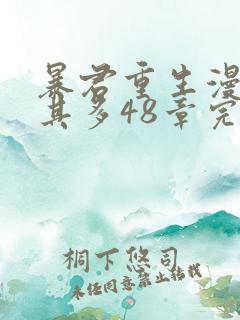 暴君重生漫
其多48章完
桐下悠司
未经同意禁止转载